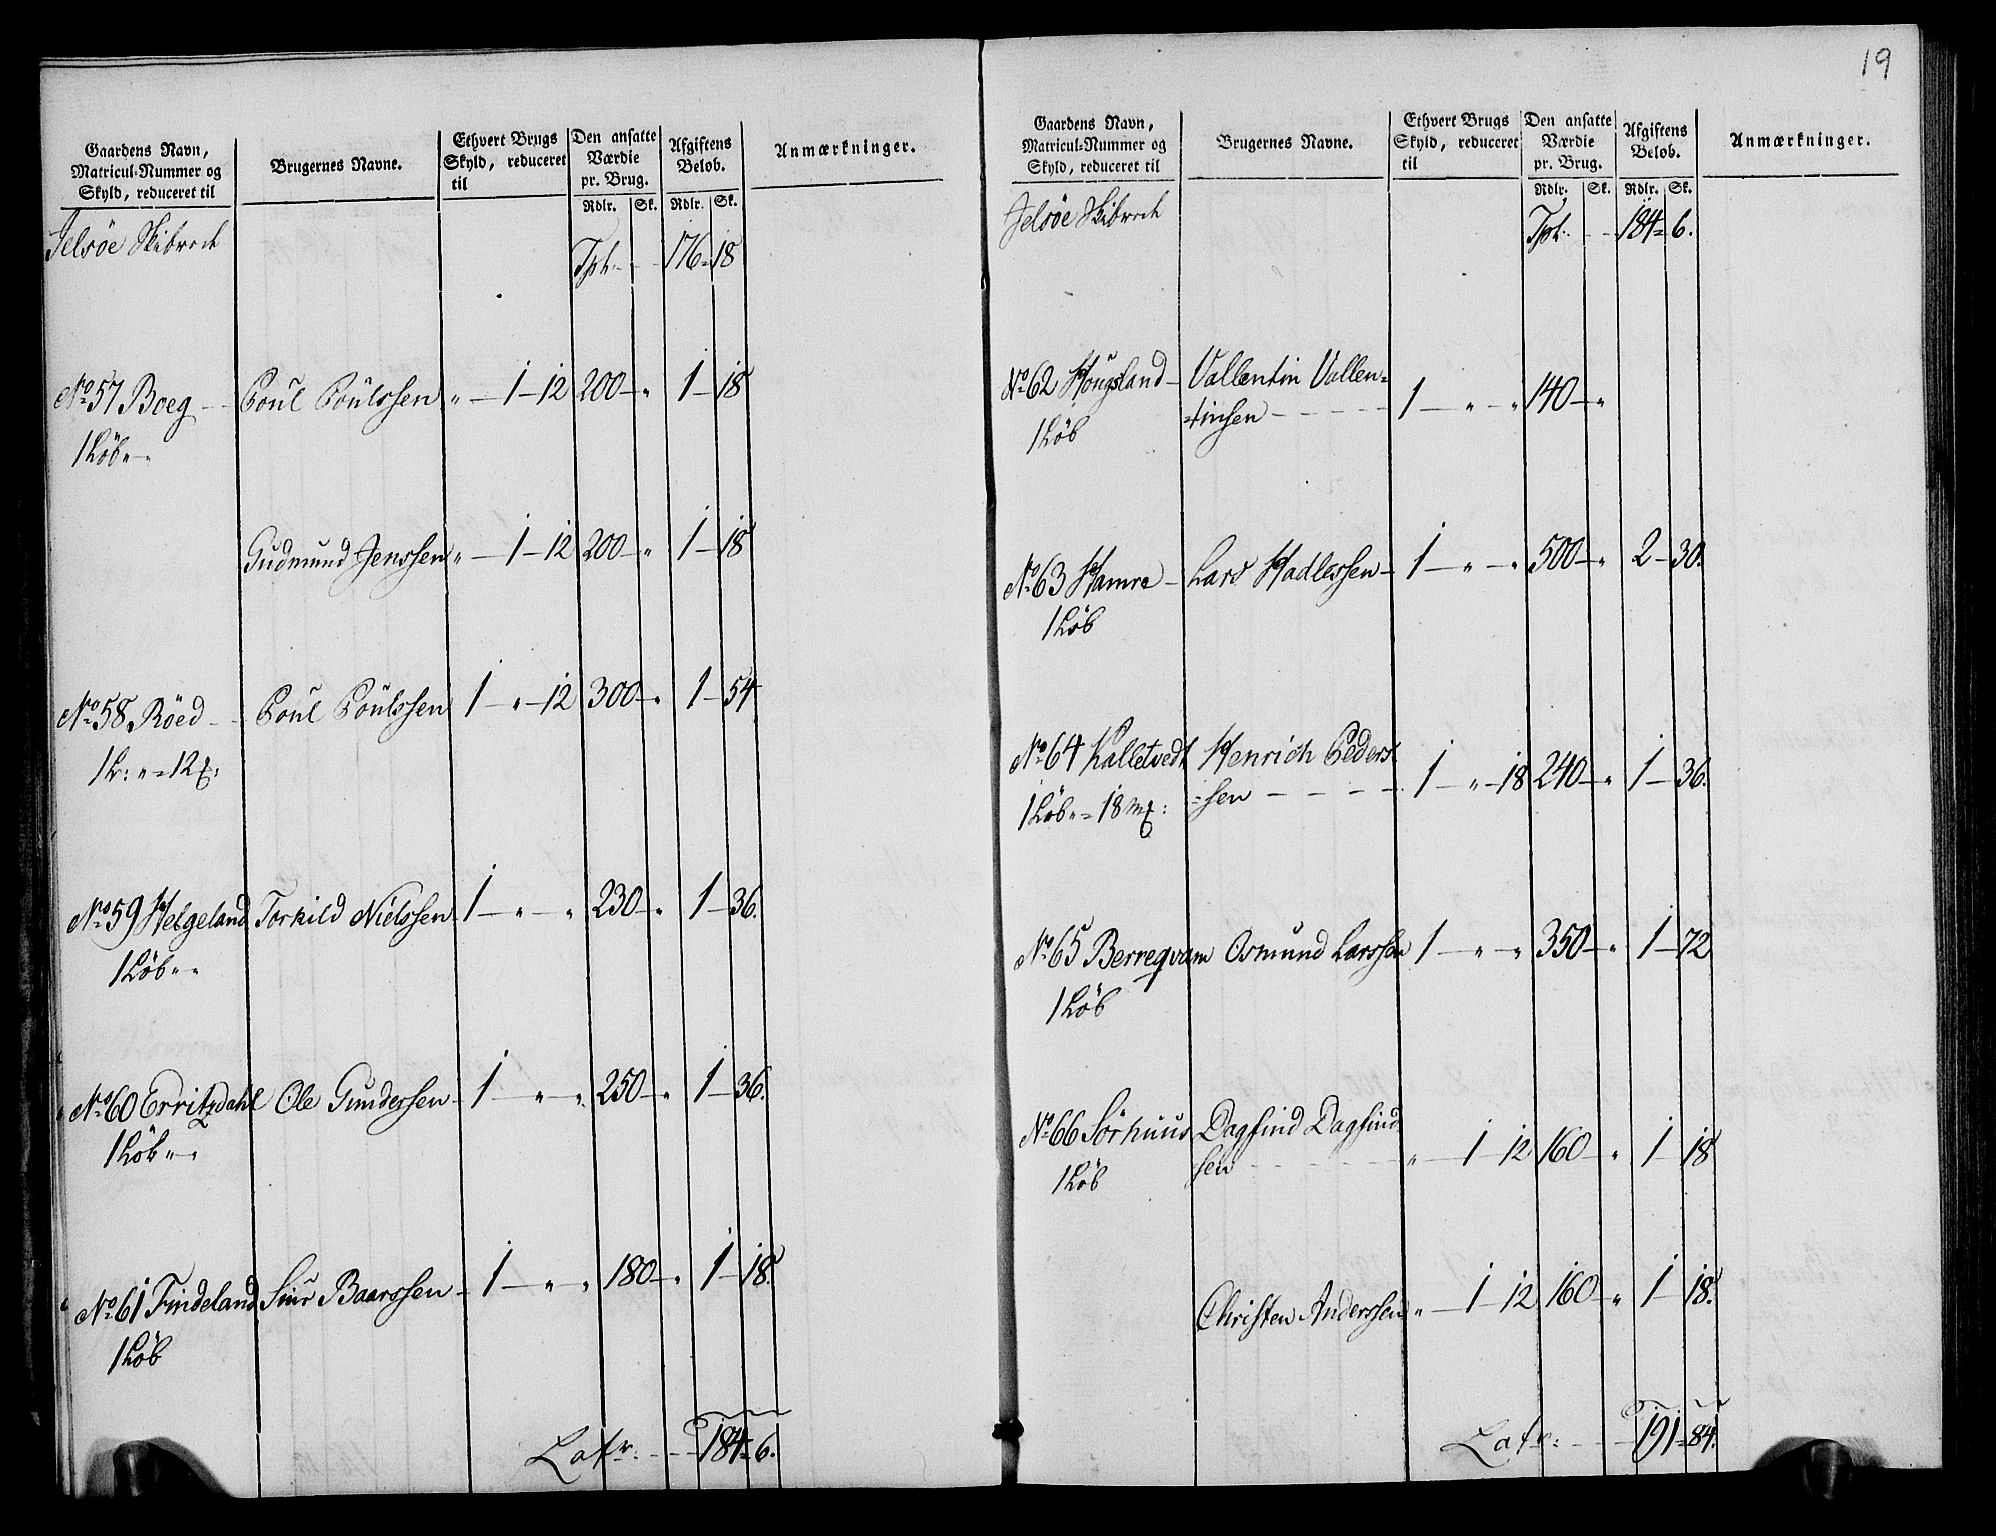 Gaardens Navn,
Matricul-Nummer og
Skyld, reduceret til
Brugernes Navne.
Ethvert Brugs
Skyld, reduceret
til
Den ansatte
Værdie
pr. Brug.
Afgiftens
Beløb.
Anmærkninger.
Rdlr. Sk. Rdlr. Sk.
Jelsöe Skibrede
Tph. - - 176 = 18
No 57 Boeg - - Poul Poulssen „ - 1 - 12 200 - „ 1 - 18
1 Löb „ - „
Gudmund Jenssen „ - 1 - 12 200 - „ 1 - 18
No 58 Röed - - Poul Poulssen 1 - „ - 12 300 - „ 1 - 54
1 L: „ = 12 ℔:
No 59 Helgeland Torkild Nielssen - 1 - „ - „ 230 - „ 1 - 36.
1 Löb „ - „
No 60 Erritzdahl Ole Gunderssen - 1 - „ - „ 250 - „ 1 - 36.
1 Löb „ - „
No 61 Findeland Siur Baarssen - 1 - „ „ 180 - „ 1 - 18.
1 Löb
Latr: - - 184 = 6.
19
Gaardens Navn,
Matricul-Nummer og
Skyld, reduceret til
Brugernes Navne.
Ethvert Brugs
Skyld, reduceret
til
Den ansatte
Værdie
pr. Brug.
Afgiftens
Beløb.
Anmærkninger.
Rdlr. Sk. Rdlr. Sk.
Jelsöe Skibrede
Tph. - - 184 = 6.
No 62 Hougsland - Vallentin Vallen=
=tinsen - - - - - 1 - „ - „ 140 - „
1 Löb
No 63 Hamre - Lars Hadlessen - 1 - „ - „ 500 - „ 2 - 30.
1 Löb
No 64 Kalletvedt Henrich Peders
1 Löb „ = 18 m℔: =sen - - - - 1 - „ - 18 240 - „ 1 - 36.
No 65 Berreqvam Osmund Larssen 1 - „ - „ 350 - „ 1 - 72
1 Löb
No 66 Sörhuus Dagfind Dagfind
sen - - - - - „ - 1 - 12 160 - „ 1 - 18
1 Löb
Christen Anderssen „ - 1 - 12 160 - „ 1 - 18.
Latr: - - 191 = 84.